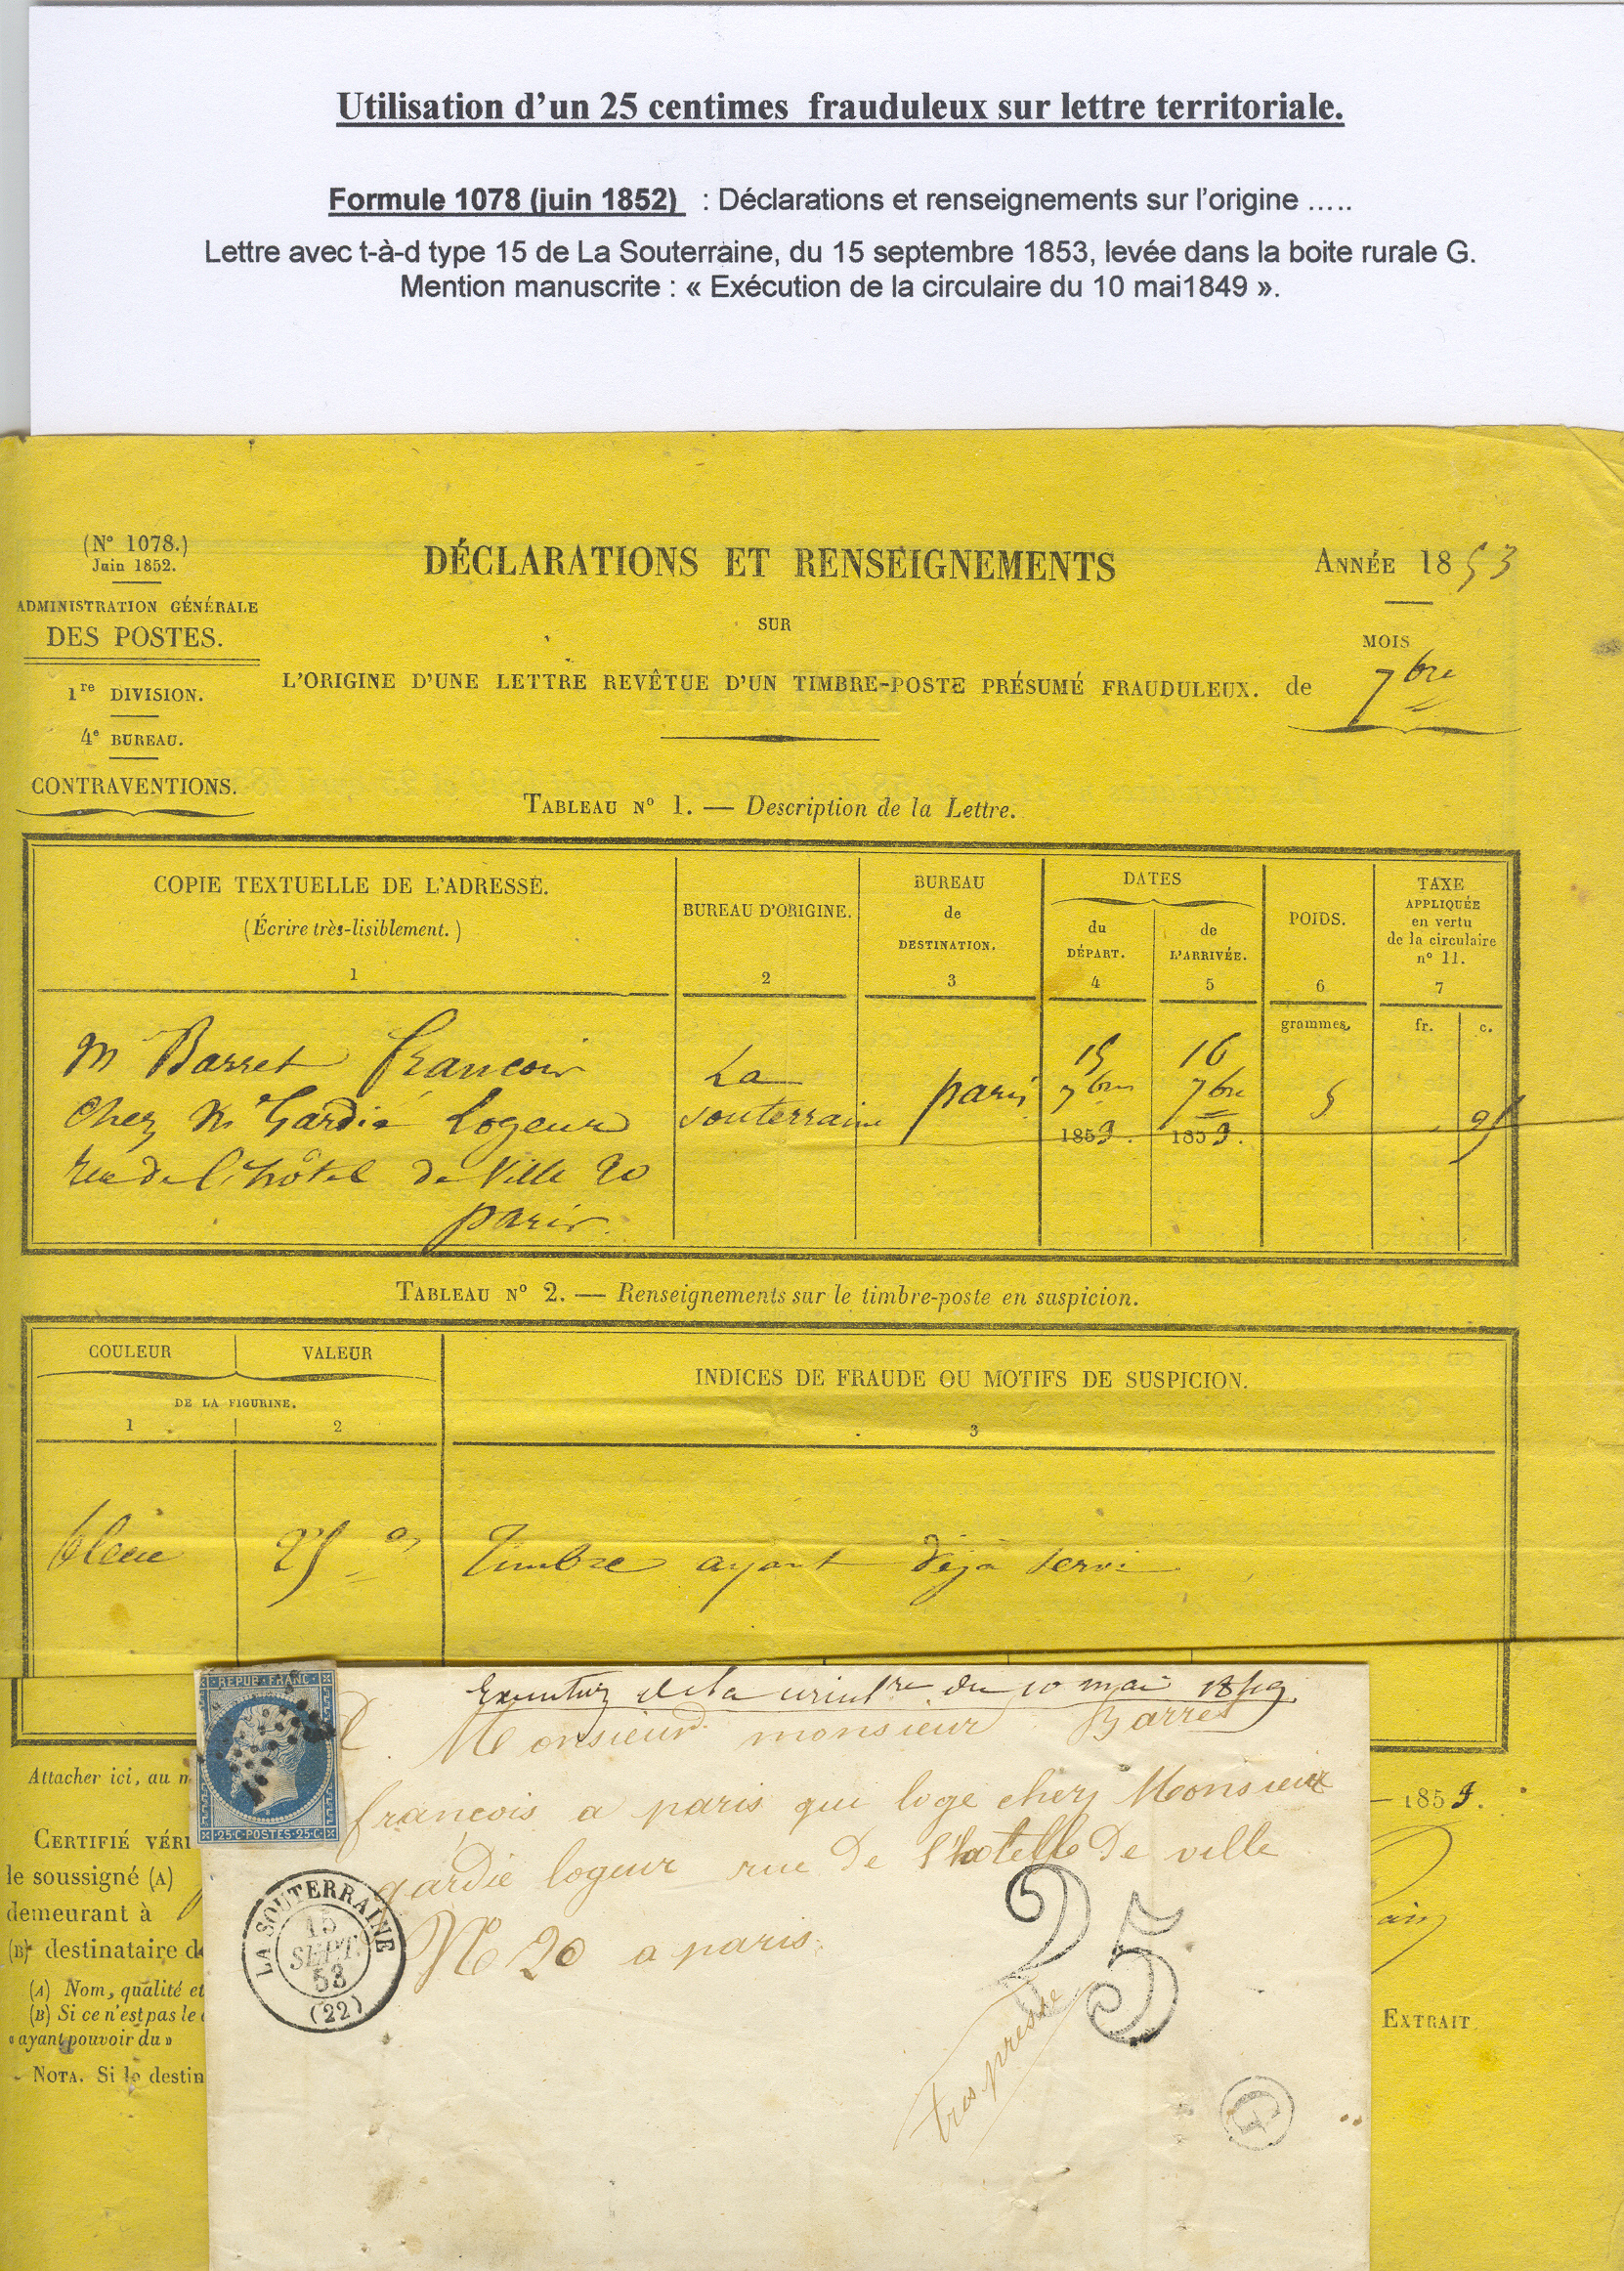 Utilisation d'un 25 centimes frauduleux sur lettre territoriale.
Formule 1078 (juin 1852) : Déclarations et renseignements sur l'origine .....
Lettre avec t-à-d type 15 de La Souterraine, du 15 septembre 1853, levée dans la boite rurale G.
Mention manuscrite : « Exécution de la circulaire du 10 mai1849 ».
(N° 1078.)
Juin 1852.
ADMINISTRATION GÉNÉRALE
DES POSTES.
1re DIVISION.
4e BUREAU.
CONTRAVENTIONS.
DÉCLARATIONS ET RENSEIGNEMENTS
SUR
L'ORIGINE D'UNE LETTRE REVÊTUE D'UN TIMBRE-POSTE PRÉSUMÉ FRAUDULEUX.
ANNÉE 1853
MOIS
de 7bre
TABLEAU N° 1. — Description de la Lettre.
COPIE TEXTUELLE DE L'ADRESSE.
(Écrire très-lisiblement.)
1
BUREAU D'ORIGINE.
2
BUREAU
de
DESTINATION.
3
DATES
du
DÉPART.
4
de
L'ARRIVÉE.
5
POIDS.
6
TAXE
APPLIQUÉE
en vertu
de la circulaire
n° 11.
7
grammes.
fr.
c.
M Barret francois
Chez Mr Gardié Logeur
rue de l'hôtel de Ville 20
paris.
La
souterraine
paris
15
7bre
1853.
16
7bre
1853.
5
25
TABLEAU N° 2. — Renseignements sur le timbre-poste en suspicion.
COULEUR
VALEUR
DE LA FIGURINE.
1
2
INDICES DE FRAUDE OU MOTIFS DE SUSPICION.
3
bleue
25 c
Timbre ayant déjà servi
REPUB FRANC
25 C POSTES 25 C
du 10 mai 1849.
Monsieur monsieur Barret
francois a paris qui loge chez Monsieur
gardie logeur rue de l'hotelle de ville
N 20 a paris.
LA SOUTERRAINE
15
SEPT.
53
(22)
25
tres pressé
G
Attacher ici, au
CERTIFIÉ VÉRI
le soussigné (A)
demeurant à
(B) destinataire d
(A) Nom, qualité et
(B) Si ce n'est pas le
« ayant pouvoir du »
NOTA. Si le destin
1853.
EXTRAIT